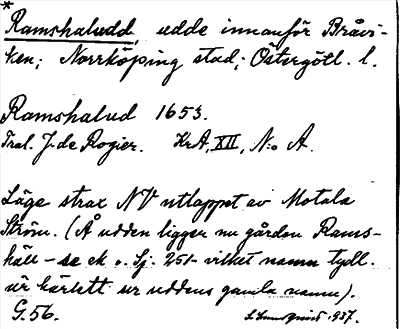 *
Ramshaludd, udde innanför Bråvi-
ken; Norrköping stad; Östergötl. l.
Ramshalud 1653.
Tral. J. de Rogier. KrA, XII, N:o A.
Läge strax NV utloppet av Motala
Ström. (Å udden ligger nu gården Rams-
häll - se ek. o. Sj. 251 - vilket namn tydl.
är härlett ur uddens gamla namn).
G.56. 1937.